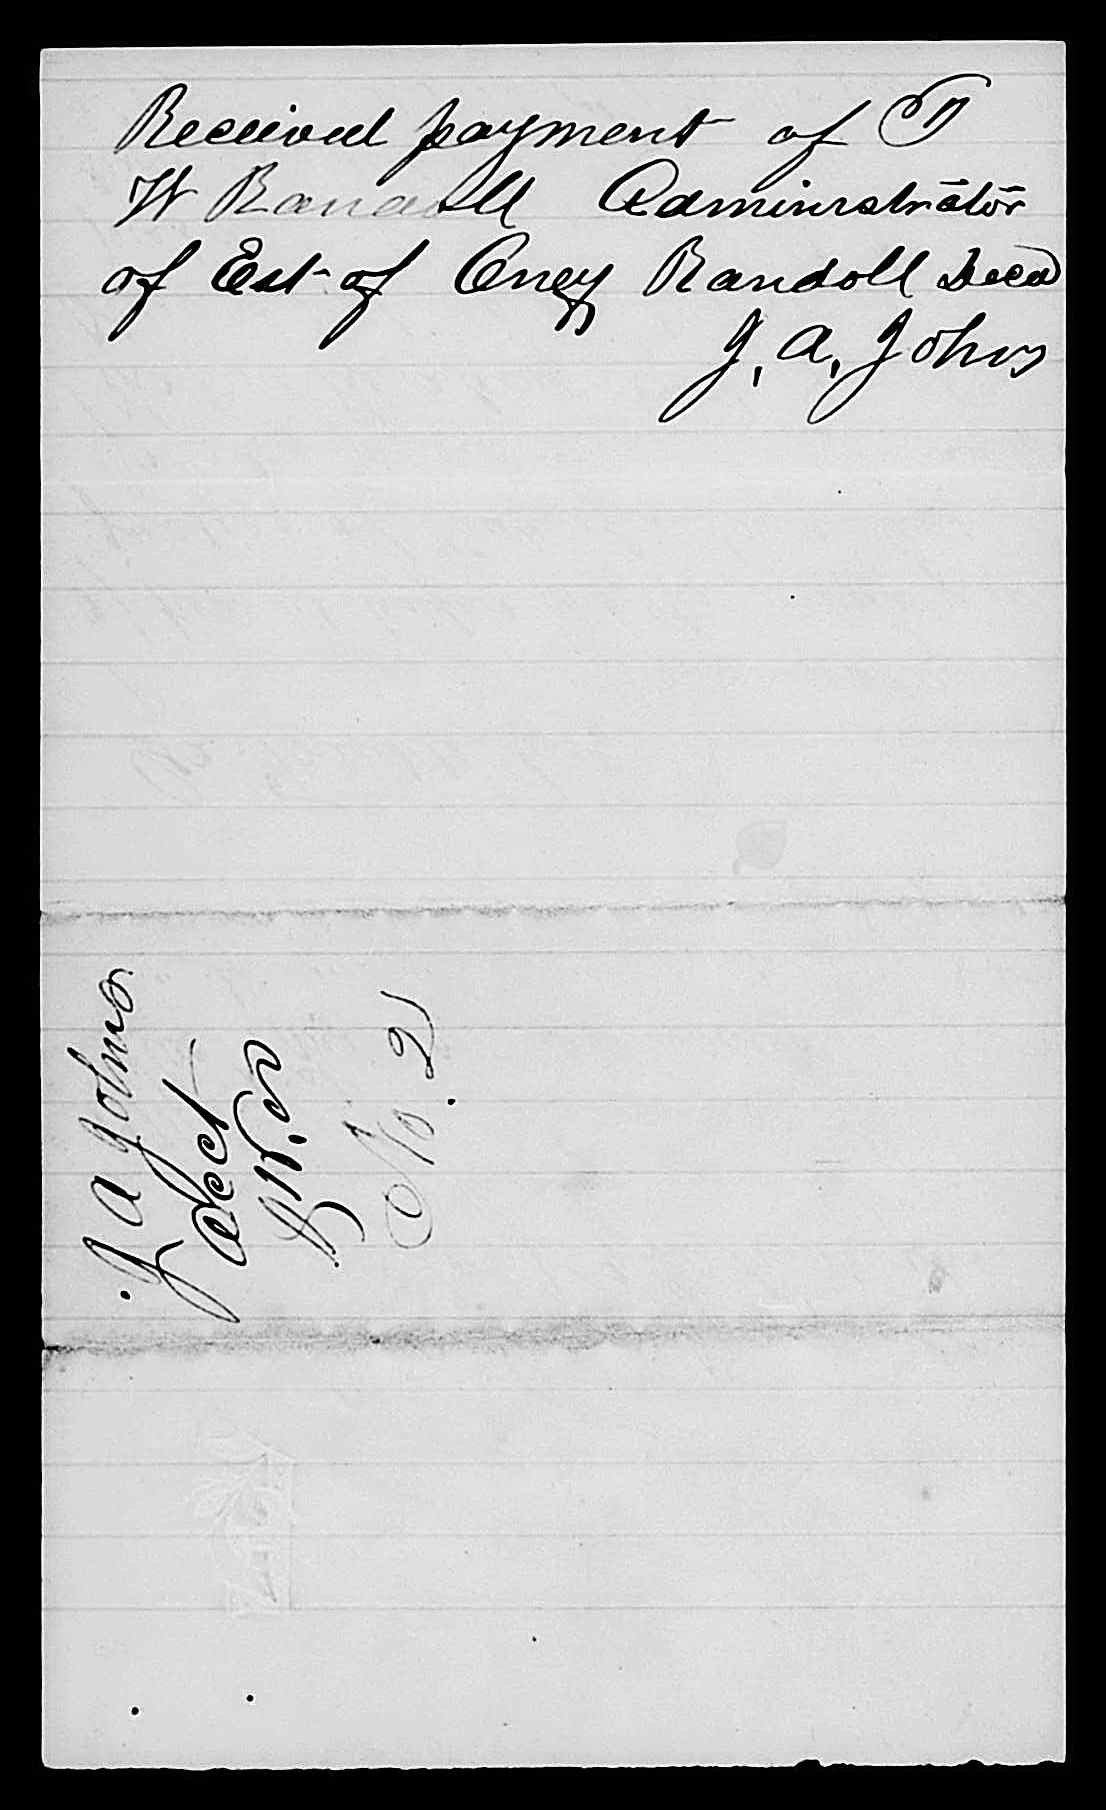 Received payment of T
W Randoll Adminirstrator
of Est of Oney Randoll Decd
J. A. Johns
J A Johns
Acct
No. 2